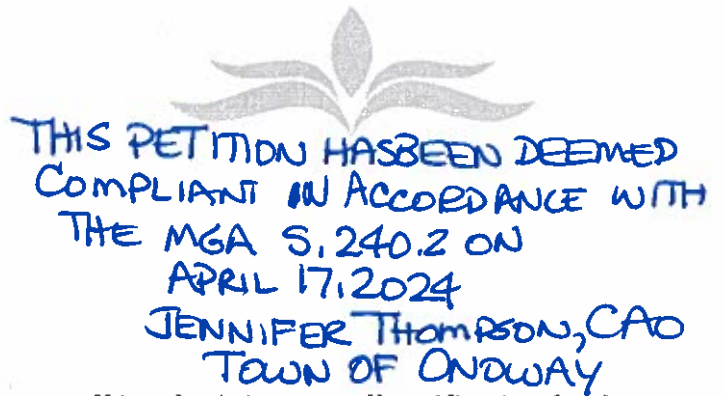 THIS PETITION HAS BEEN DEEMED
COMPLIANT IN ACCORDANCE WITH
THE MGA S. 240.2 ON
APRIL 17, 2024
JENNIFER THOMPSON, CAO
TOWN OF ONOWAY